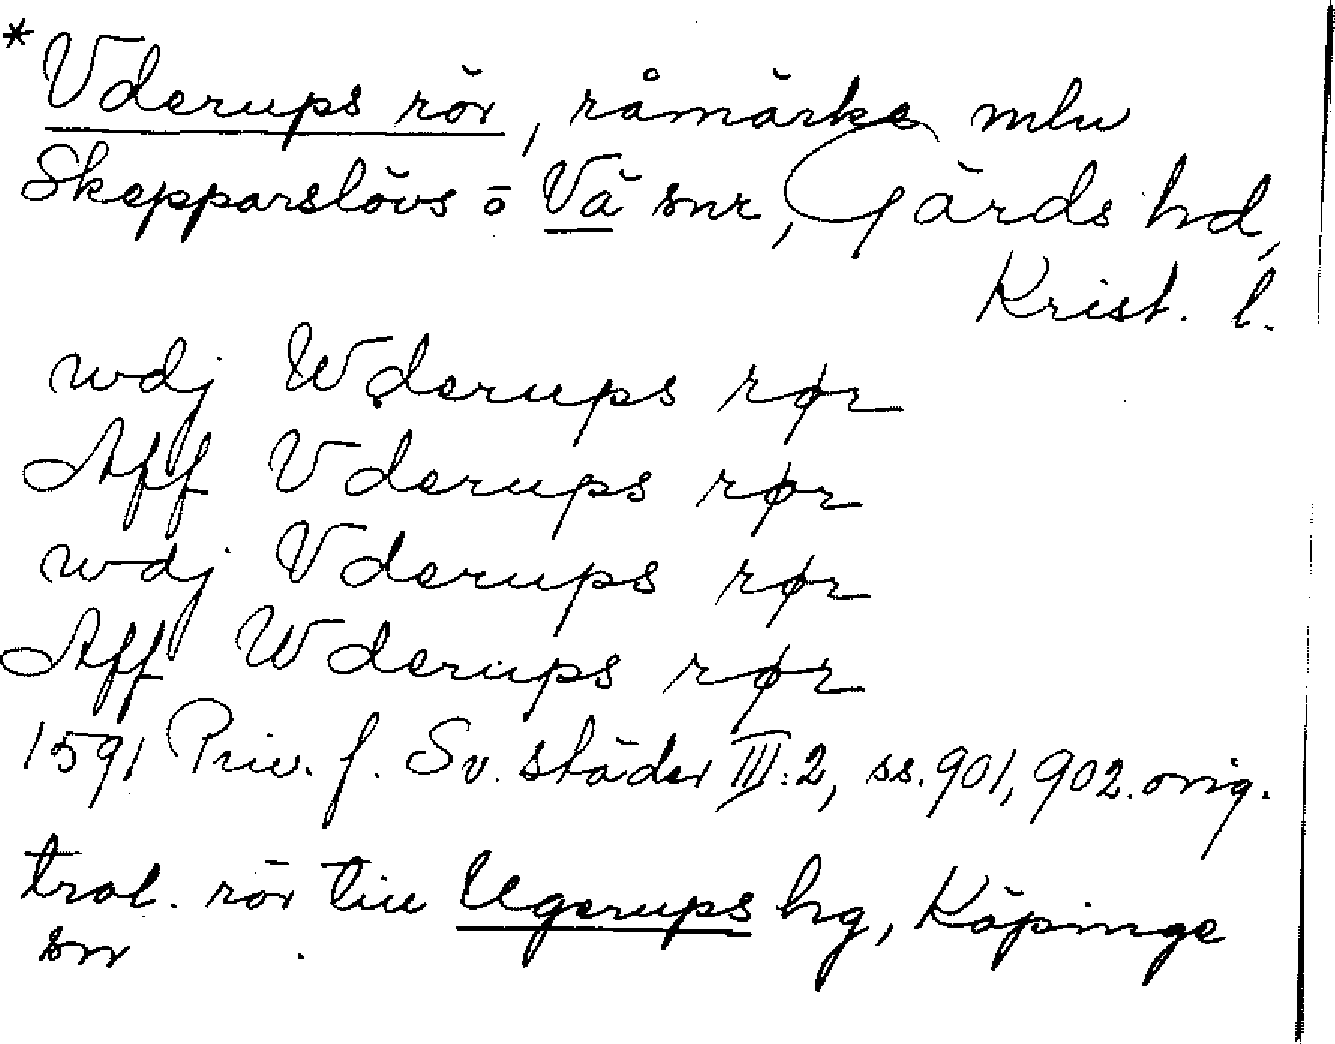 * Vderups rör, råmärke mlu
Skepparslövs ō Vä snr, Gärds hd,
Krist. l.
wdj Wderups rør
Aff Vderups rør
wdj Vderups rør
Aff Wderups rør
1591 Priv. f. Sv. städer III:2, ss. 901, 902. orig.
trol. rör till Ugerups hg, Köpinge
sn